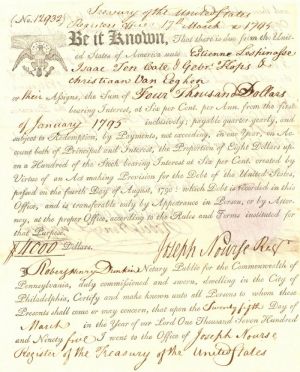 (No. 12932) Treasury of the United States
Register's Office 17th March 1795
Be it Known, That there is due from the Unit-
ed States of America unto Etienne Lespinasse
Isaac Ten Cate, & Gebrs. Haps &
Christiaan Van Eeghen
or their Assigns, the Sum of Four Thousand Dollars
bearing Interest, at Six per Cent. per Ann. from the first
of January 1795 inclusively; payable quarter yearly, and
subject to Redemption, by Payments, not exceeding, in one Year, on Ac-
count both of Principal and Interest, the Proportion of Eight Dollars up-
on a Hundred of the Stock bearing Interest at Six per Cent. created by
Virtue of an Act making Provision for the Debt of the United States,
passed on the fourth Day of August, 1790: which Debt is recorded in this
Office, and is transferable only by Appearance in Person, or by Attor-
ney, at the proper Office, according to the Rules and Terms instituted for
that Purpose.
$4000 Dollars. Joseph Nourse Regr.
I Robert Henry Dunkin Notary Public for the Commonwealth of
Pennsylvania, duly commissioned and sworn, dwelling in the City of
Philadelphia, Certify and make known unto all Persons to whom these
Presents shall come or may concern, that upon the Twenty fifth day of
March in the Year of our Lord One Thousand Seven Hundred
and Ninety five I went to the Office of Joseph Nourse
Register of the Treasury of the United States